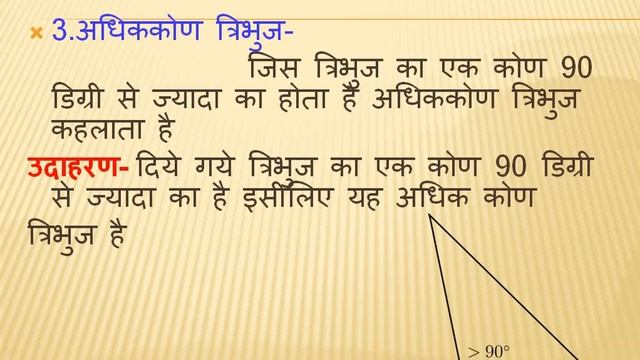 3.अधिककोण त्रिभुज-
जिस त्रिभुज का एक कोण 90
डिग्री से ज्यादा का होता है अधिककोण त्रिभुज
कहलाता है
उदाहरण- दिये गये त्रिभुज का एक कोण 90 डिग्री
से ज्यादा का है इसीलिए यह अधिक कोण
त्रिभुज है
> 90°